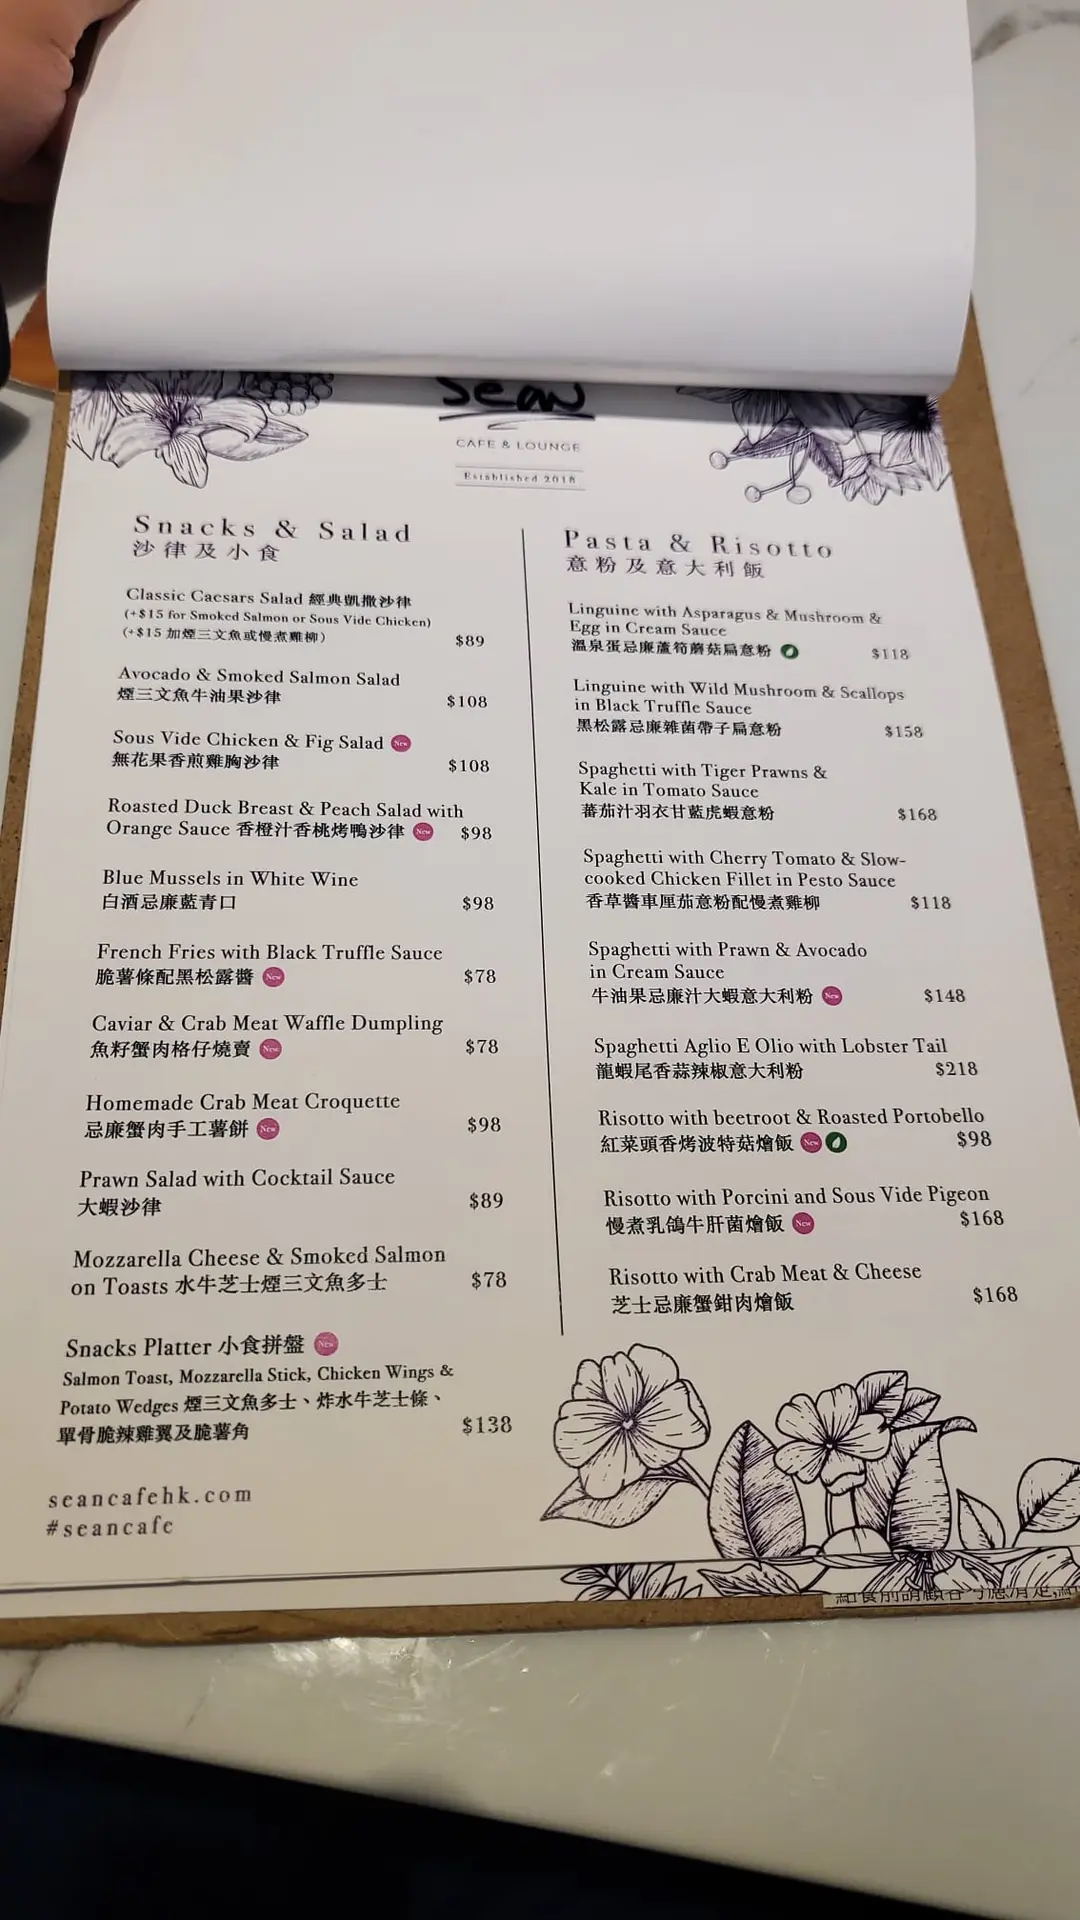 Sean
CAFE & LOUNGE
Established 2018
Snacks & Salad
沙律及小食
Classic Caesars Salad 經典凱撒沙律
(+$15 for Smoked Salmon or Sous Vide Chicken)
(+$15 加煙三文魚或慢煮雞柳)
$89
Avocado & Smoked Salmon Salad
煙三文魚牛油果沙律
$108
Sous Vide Chicken & Fig Salad New
無花果香煎雞胸沙律
$108
Roasted Duck Breast & Peach Salad with
Orange Sauce 香橙汁香桃烤鴨沙律 New $98
Blue Mussels in White Wine
白酒忌廉藍青口
$98
French Fries with Black Truffle Sauce
脆薯條配黑松露醬 New
$78
Caviar & Crab Meat Waffle Dumpling
魚籽蟹肉格仔燒賣 New
$78
Homemade Crab Meat Croquette
忌廉蟹肉手工薯餅 New
$98
Prawn Salad with Cocktail Sauce
大蝦沙律
$89
Mozzarella Cheese & Smoked Salmon
on Toasts 水牛芝士煙三文魚多士
$78
Snacks Platter 小食拼盤 New
Salmon Toast, Mozzarella Stick, Chicken Wings &
Potato Wedges 煙三文魚多士、炸水牛芝士條、
單骨脆辣雞翼及脆薯角
$138
seancafehk.com
#seancafe
Pasta & Risotto
意粉及意大利飯
Linguine with Asparagus & Mushroom &
Egg in Cream Sauce
溫泉蛋忌廉蘆筍蘑菇扁意粉
$118
Linguine with Wild Mushroom & Scallops
in Black Truffle Sauce
黑松露忌廉雜菌帶子扁意粉
$158
Spaghetti with Tiger Prawns &
Kale in Tomato Sauce
蕃茄汁羽衣甘藍虎蝦意粉
$168
Spaghetti with Cherry Tomato & Slow-
cooked Chicken Fillet in Pesto Sauce
香草醬車厘茄意粉配慢煮雞柳
$118
Spaghetti with Prawn & Avocado
in Cream Sauce
牛油果忌廉汁大蝦意大利粉 New
$148
Spaghetti Aglio E Olio with Lobster Tail
龍蝦尾香蒜辣椒意大利粉
$218
Risotto with beetroot & Roasted Portobello
紅菜頭香烤波特菇燴飯 New
$98
Risotto with Porcini and Sous Vide Pigeon
慢煮乳鴿牛肝菌燴飯 New
$168
Risotto with Crab Meat & Cheese
芝士忌廉蟹鉗肉燴飯
$168